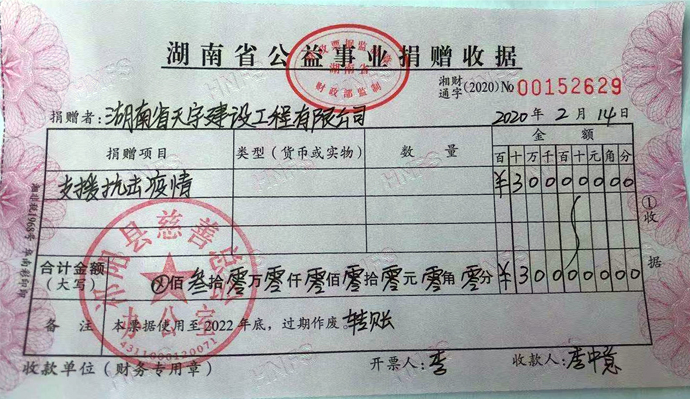 湖南省公益事业捐赠收据
湘财通字(2020) No 00152629
捐赠者：湖南省天宇建设工程有限公司 2020年2月14日
捐赠项目 类型（货币或实物） 数量 金额
百十万千百十元角分
支援抗击疫情 ¥30000000
合计金额（大写） ⊗佰叁拾零万零仟零佰零拾零元零角零分 ¥30000000
备注 本票据使用至2022年底，过期作废。转账
收款单位（财务专用章） 开票人：李 收款人：李中意
①收据
财政部监制
祁阳县慈善总会
办公室
4311000120071